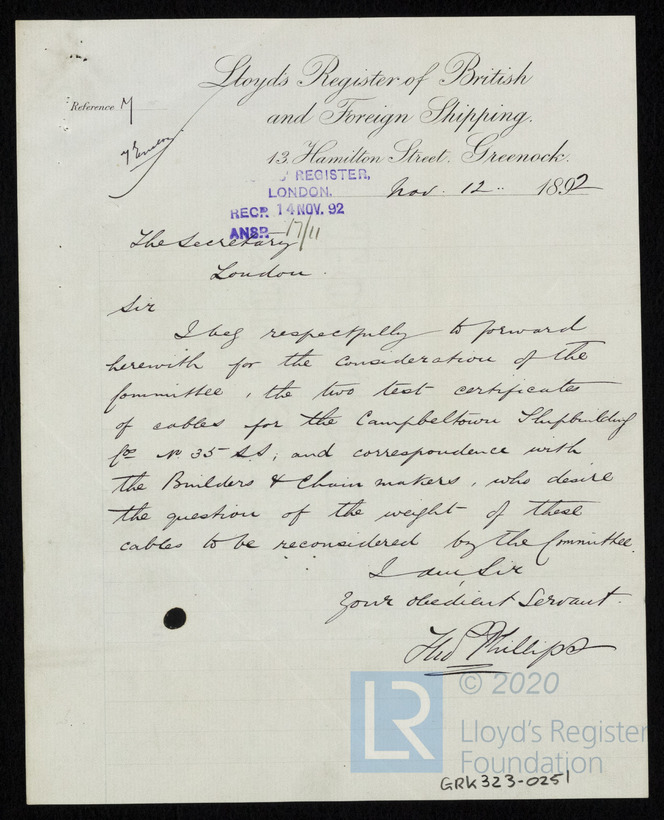 Lloyds Register of British
and Foreign Shipping.
Reference M
13. Hamilton Street. Greenock.
Nov. 12.. 1892
REGISTER,
LONDON.
RECD. 14 NOV. 92
ANSD. 17/11
The Secretary
London.
Sir
I beg respectfully to forward
herewith for the consideration of the
Committee, the two test certificates
of cables for the Campbeltown Shipbuilding
Coo No 35 S.S; and correspondence with
the Builders & Chain makers, who desire
the question of the weight of these
cables to be reconsidered by the Committee.
I am, Sir
Your obedient Servant.
Phillips
LR
© 2020
Lloyd's Register
Foundation
GRK323-0251